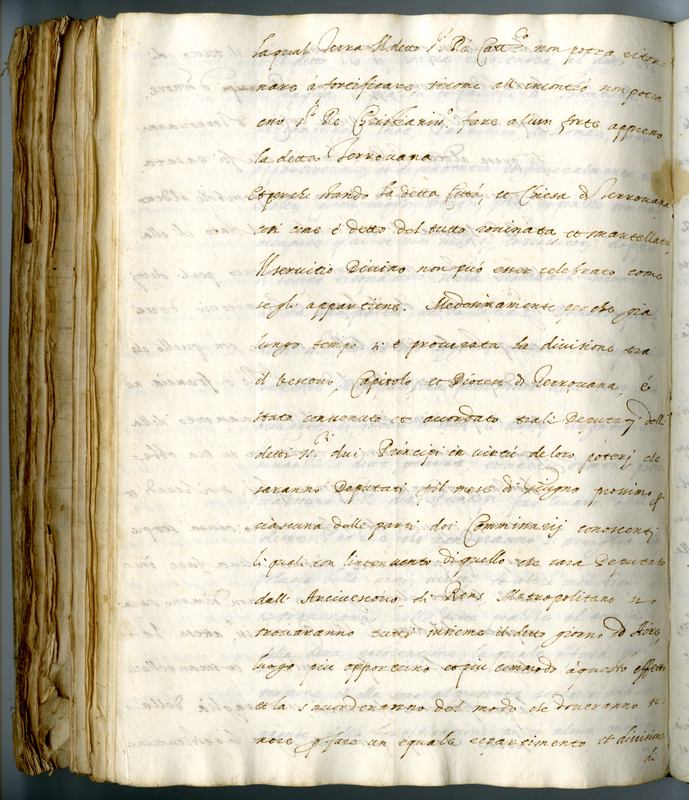 la qual Terra il detto S.r Re Catt.co non potra ritor-
nare á fortificare, sicome all'incontro non potra
esso S.r Re Cristianiss.o fare alcun forte appresso
la detta Terrouana
Et perche stando la detta Città, et Chiesa di Terrouana
cosi come é detto del tutto rouinata et smantellata,
Il seruitio Diuino non può esser celebrato come
se gli appartiene. Medesimamente perche gia
lungo tempo si é procurata la diuisione tra
il Vescouo, Capitolo, et Diocesi di Terrouana, é
stato conuenuto et accordato tra li Deputati delli
detti ss.ri dui Principi in virtù de loro poterj che
saranno Deputati p il mese di Giugno prossimo p
ciascuna delle parti doi Commissarij conoscenti
li quali con l'interuento di quello che sara Deputato
dall' Arciuescouo di Rens, Metropolitano si
trouaranno tutti insieme il detto giorno ad Aire,
luogo piu opportuno et piu commodo á questo effetto
et la s'accorderanno del modo che doueranno te-
nere p fare un equale compartimento et diuisione
di